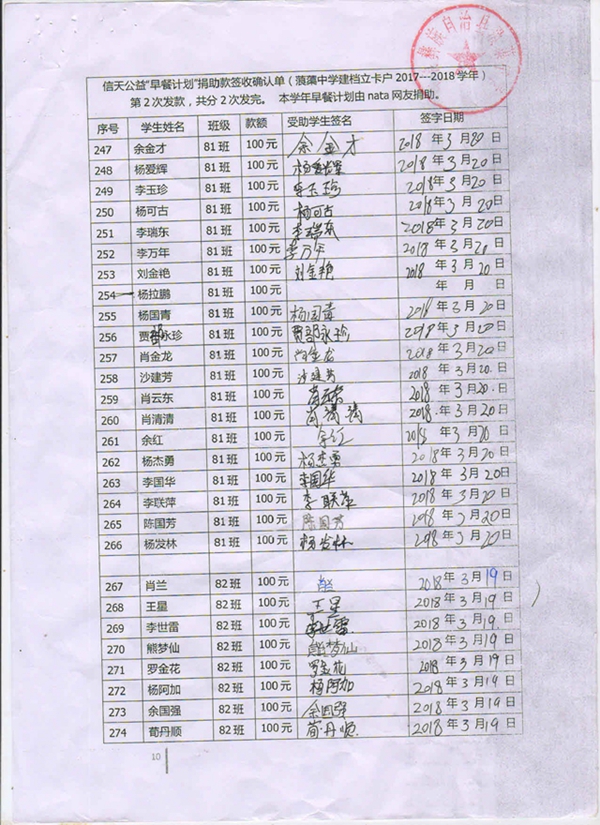 族自治县
信天公益“早餐计划”捐助款签收确认单（蒗蕖中学建档立卡户 2017---2018 学年）
第 2 次发款，共分 2 次发完。 本学年早餐计划由 nata 网友捐助。
序号 学生姓名 班级 款额 受助学生签名 签字日期
247 余金才 81 班 100 元 余金才 2018 年 3 月 20 日
248 杨爱辉 81 班 100 元 杨爱辉 2018 年 3 月 20 日
249 李玉珍 81 班 100 元 李玉珍 2018 年 3 月 20 日
250 杨可古 81 班 100 元 杨可古 2018 年 3 月 20 日
251 李瑞东 81 班 100 元 李瑞东 2018 年 3 月 20 日
252 李万年 81 班 100 元 李万年 2018 年 3 月 20 日
253 刘金艳 81 班 100 元 刘金艳 2018 年 3 月 20 日
254 杨拉鹏 81 班 100 元 年 月 日
255 杨国青 81 班 100 元 杨国青 2018 年 3 月 20 日
256 贾部永珍 81 班 100 元 贾部永珍 2018 年 3 月 20 日
257 肖金龙 81 班 100 元 肖金龙 2018 年 3 月 20 日
258 沙建芳 81 班 100 元 沙建芳 2018 年 3 月 20 日
259 肖云东 81 班 100 元 肖云东 2018 年 3 月 20 日
260 肖清清 81 班 100 元 肖清清 2018 年 3 月 20 日
261 余红 81 班 100 元 余红 2018 年 3 月 20 日
262 杨杰勇 81 班 100 元 杨杰勇 2018 年 3 月 20 日
263 李国华 81 班 100 元 李国华 2018 年 3 月 20 日
264 李联萍 81 班 100 元 李联萍 2018 年 3 月 20 日
265 陈国芳 81 班 100 元 陈国芳 2018 年 3 月 20 日
266 杨发林 81 班 100 元 杨发林 2018 年 3 月 20 日
267 肖兰 82 班 100 元 肖兰 2018 年 3 月 19 日
268 王星 82 班 100 元 王星 2018 年 3 月 19 日
269 李世雷 82 班 100 元 李世雷 2018 年 3 月 19 日
270 熊梦仙 82 班 100 元 熊梦仙 2018 年 3 月 19 日
271 罗金花 82 班 100 元 罗金花 2018 年 3 月 19 日
272 杨阿加 82 班 100 元 杨阿加 2018 年 3 月 19 日
273 余国强 82 班 100 元 余国强 2018 年 3 月 19 日
274 荀丹顺 82 班 100 元 荀丹顺 2018 年 3 月 19 日
10